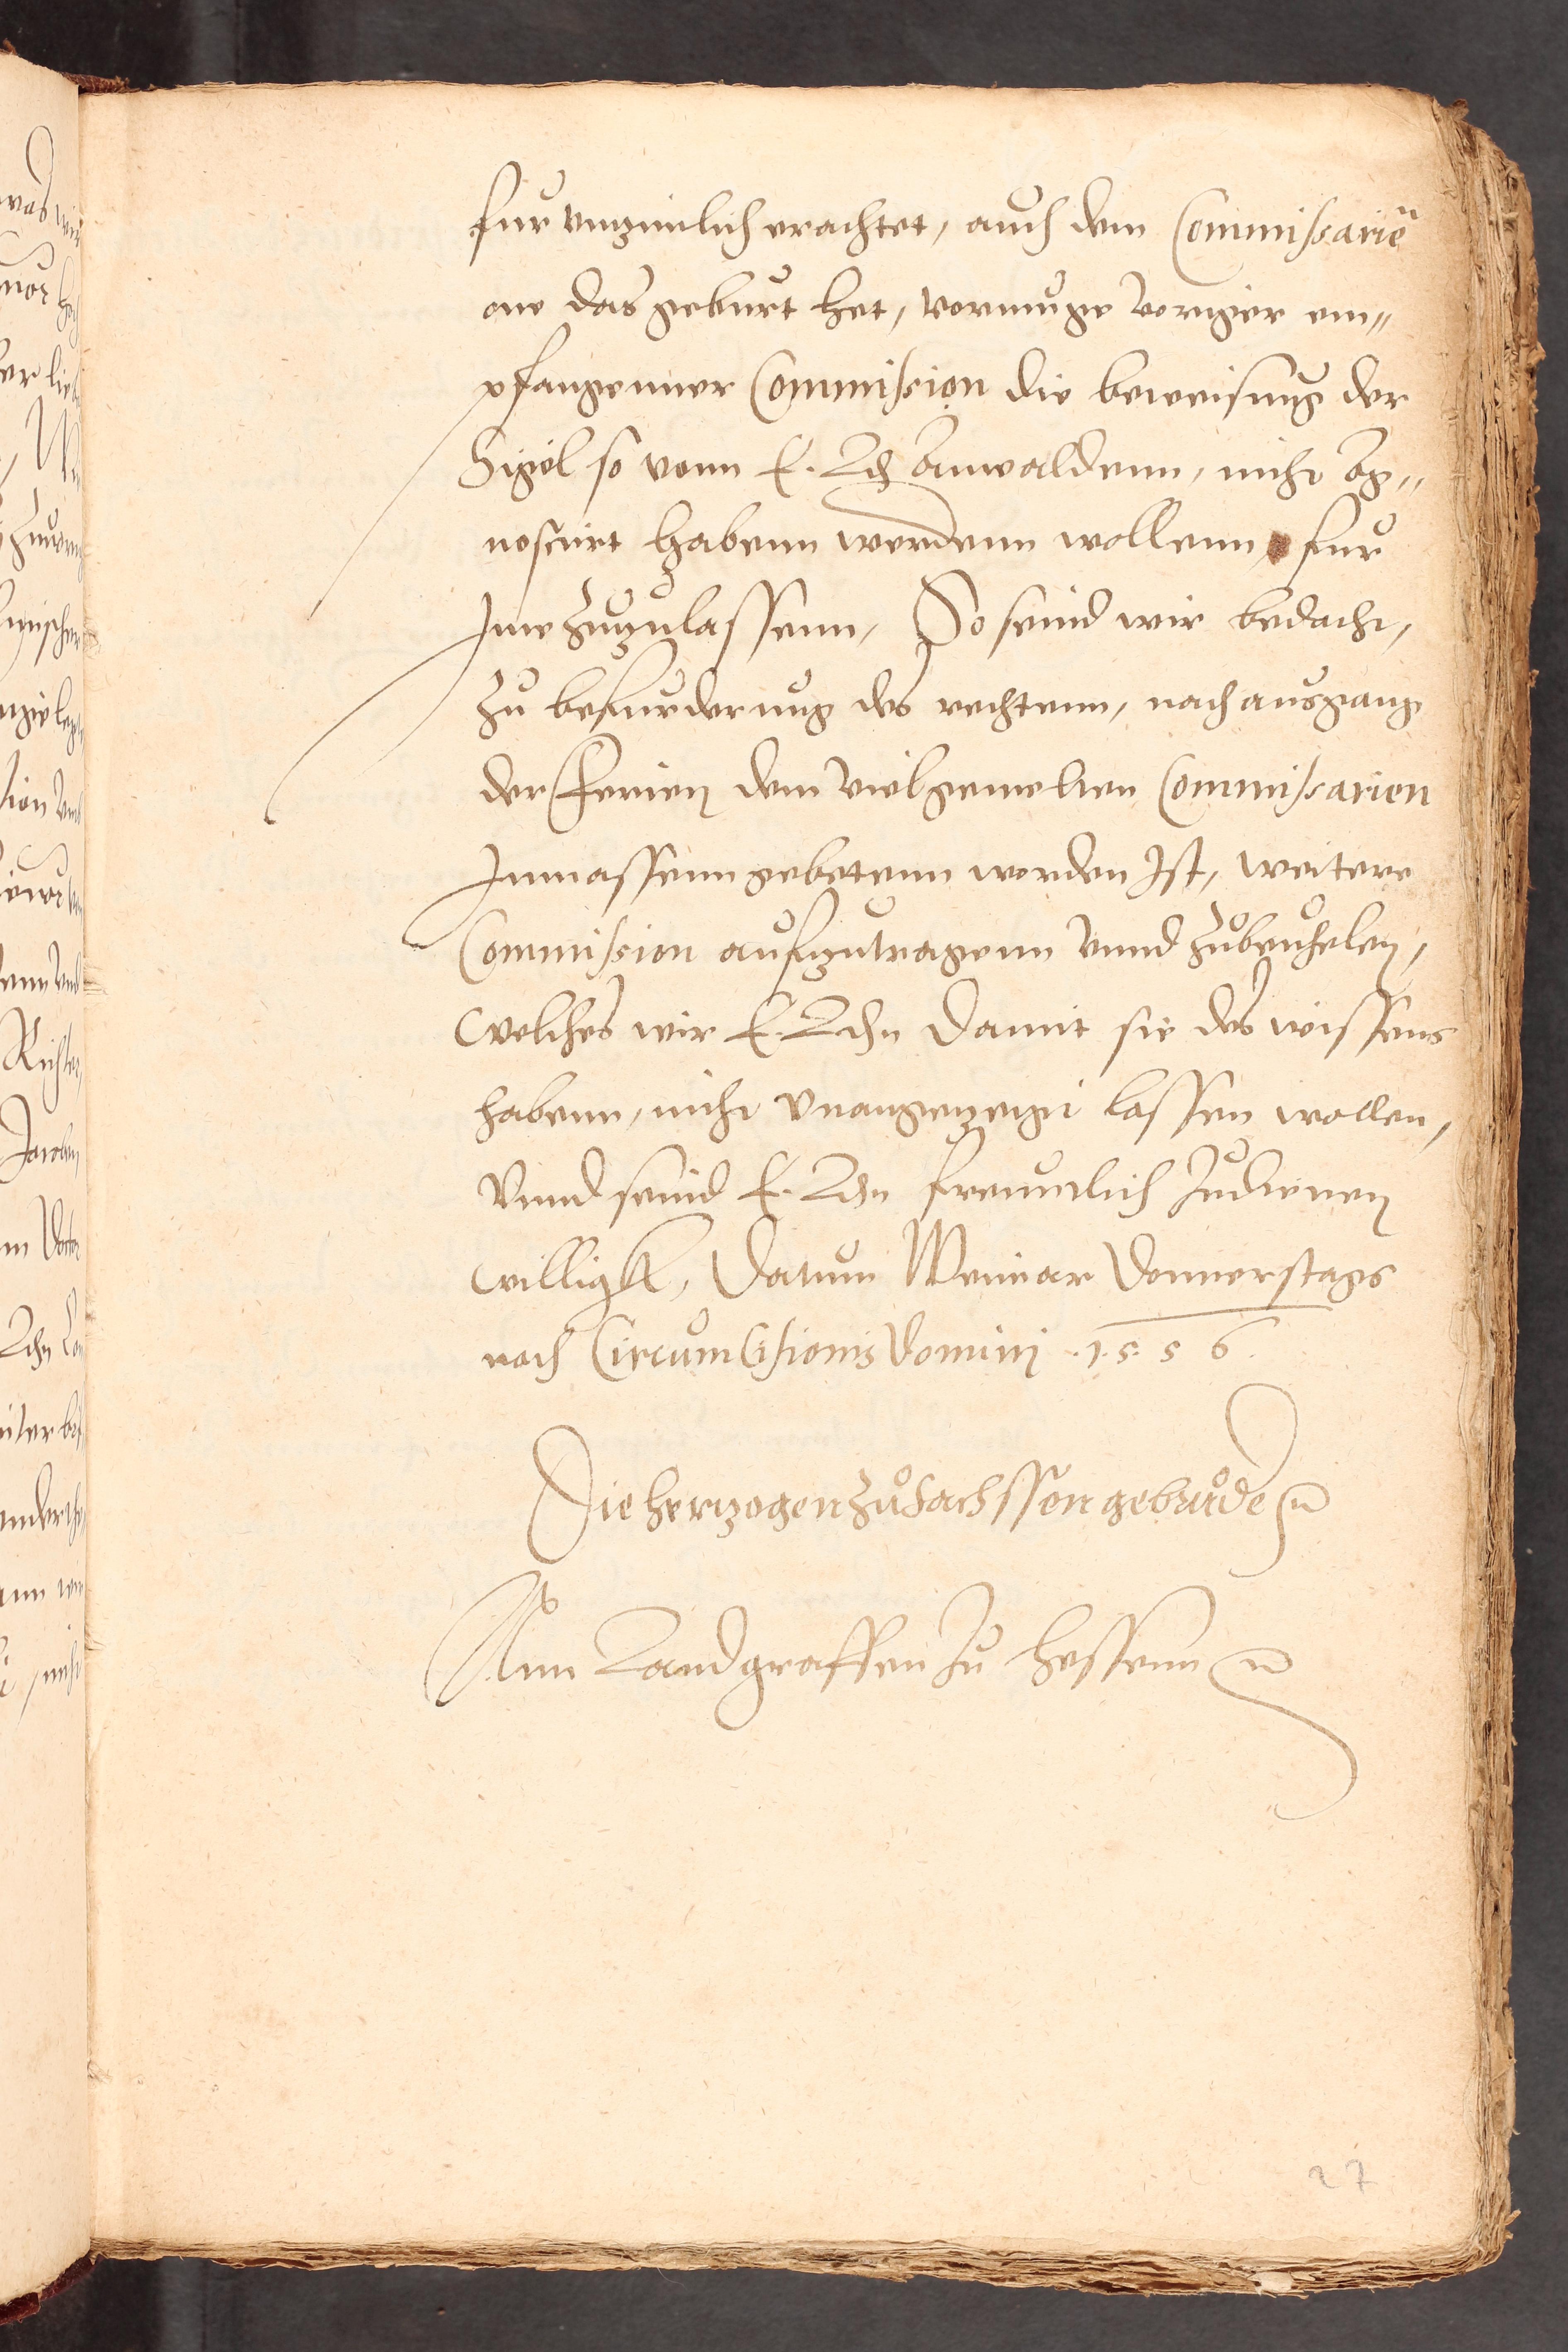 fur unzimlich erachtet, auch dem Commissariē
one das geburt het, vermuge voriger em„
pfangenner Commission die beweisung der
Sigel so vonn E. Ld Anwaldenn, nicht ag„
noscirt habenn werdenn wollenn, fur
Ime zuzulassenn, So seind wir bedacht,
zu befurderung des rechtenn, nach ausgang
der Ferien dem vielgemelten Commissarien
Inmassenn gebetenn worden Ist, weitere
Commission aufzutragenn vnnd zubeuhelen,
welches wir E. Ldn damit sie des wissens
habenn, nicht vnangezeigt lassen wollen,
Vnnd seind E. Ldn freuntlich zudienen
willigk, Datum Weimar Donnerstags
nach Circumcisionis Domini .1.5.5 6.
Die hertzogen zů Sachssen gebrůde
Ann Landgraffen zu hessenn
27